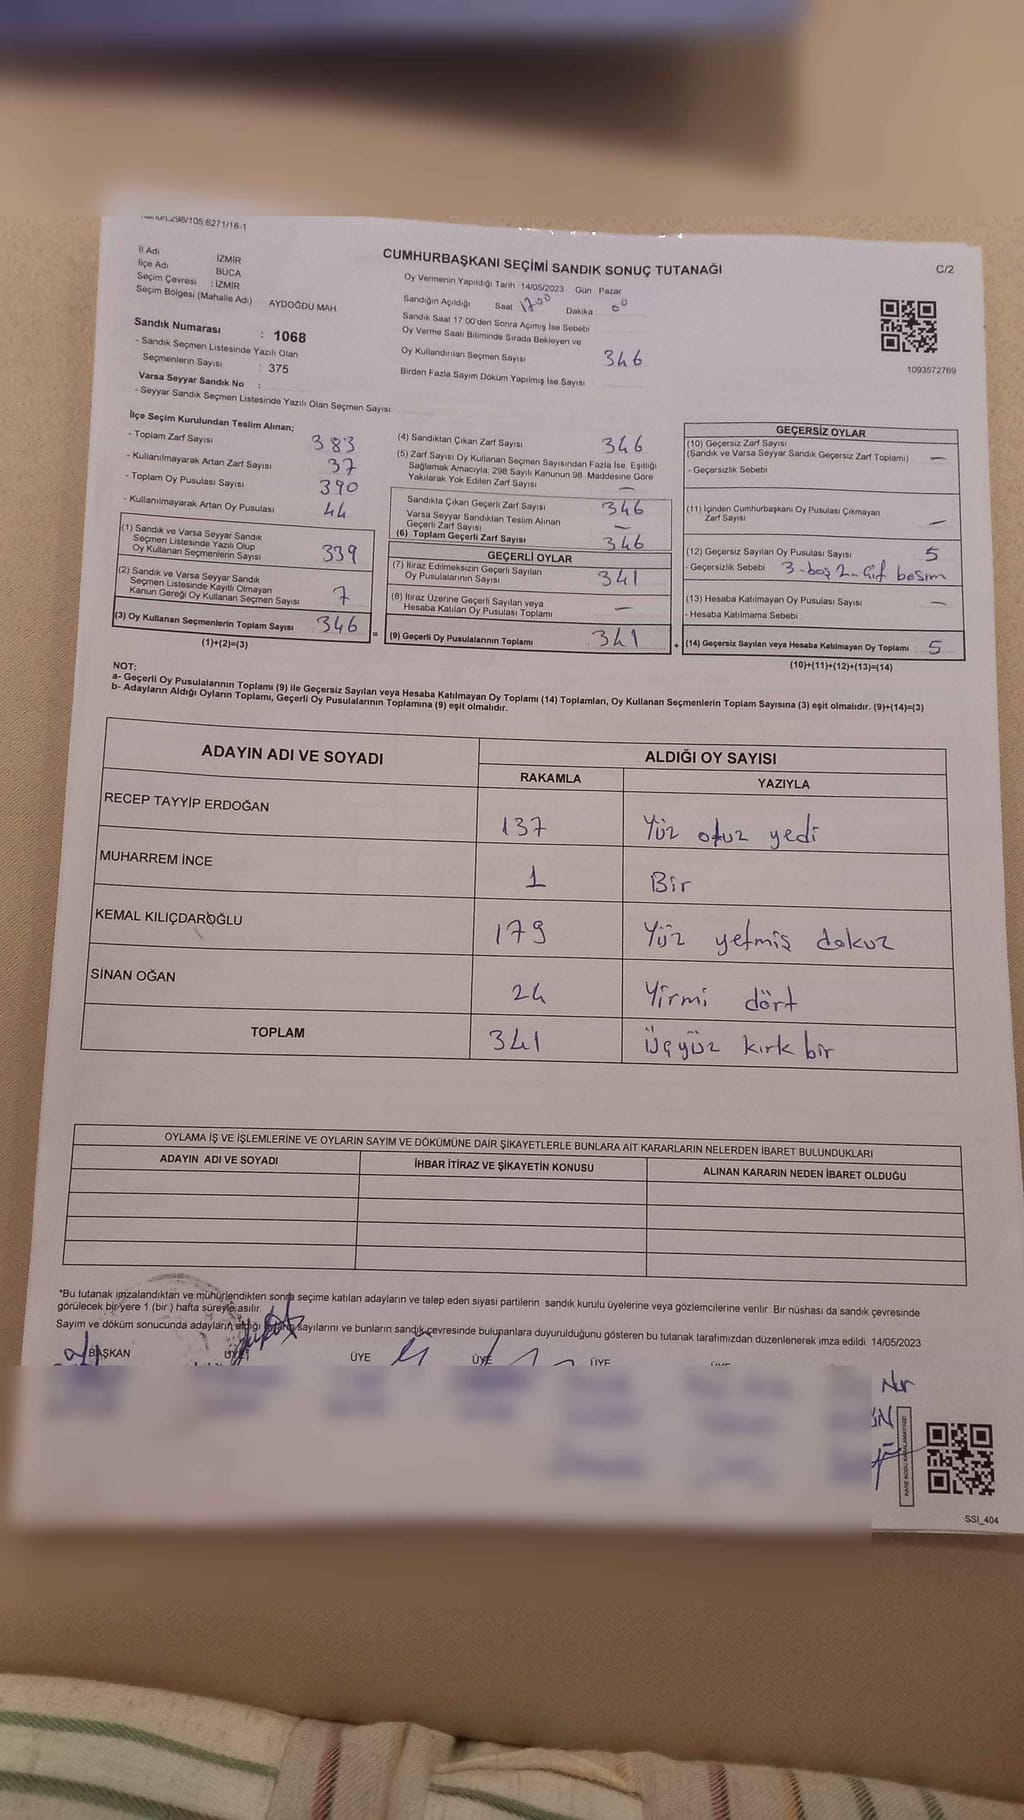 298/105,6271/18-1
CUMHURBAŞKANI SEÇİMİ SANDIK SONUÇ TUTANAĞI
C/2
İl Adı İZMİR
İlçe Adı BUCA
Seçim Çevresi : İZMİR
Seçim Bölgesi (Mahalle Adı) AYDOĞDU MAH
Sandık Numarası : 1068
- Sandık Seçmen Listesinde Yazılı Olan
Seçmenlerin Sayısı : 375
Varsa Seyyar Sandık No :
- Seyyar Sandık Seçmen Listesinde Yazılı Olan Seçmen Sayısı:
Oy Vermenin Yapıldığı Tarih : 14/05/2023 Gün : Pazar
Sandığın Açıldığı Saat 17⁰⁰ Dakika 0⁰
Sandık Saat 17 00'den Sonra Açımış İse Sebebi
Oy Verme Saati Bitiminde Sırada Bekleyen ve
Oy Kullandırılan Seçmen Sayısı 346
Birden Fazla Sayım Döküm Yapılmış İse Sayısı
1093572769
İlçe Seçim Kurulundan Teslim Alınan;
- Toplam Zarf Sayısı 383
- Kullanılmayarak Artan Zarf Sayısı 37
- Toplam Oy Pusulası Sayısı 390
- Kullanılmayarak Artan Oy Pusulası 44
(1) Sandık ve Varsa Seyyar Sandık
Seçmen Listesinde Yazılı Olup
Oy Kullanan Seçmenlerin Sayısı 339
(2) Sandık ve Varsa Seyyar Sandık
Seçmen Listesinde Kayıtlı Olmayan
Kanun Gereği Oy Kullanan Seçmen Sayısı 7
(3) Oy Kullanan Seçmenlerin Toplam Sayısı 346 =
(1)+(2)=(3)
(4) Sandıktan Çıkan Zarf Sayısı 346
(5) Zarf Sayısı Oy Kullanan Seçmen Sayısından Fazla İse, Eşitliği
Sağlamak Amacıyla, 298 Sayılı Kanunun 98. Maddesine Göre
Yakılarak Yok Edilen Zarf Sayısı —
Sandıkta Çıkan Geçerli Zarf Sayısı 346
Varsa Seyyar Sandıktan Teslim Alınan
Geçerli Zarf Sayısı —
(6) Toplam Geçerli Zarf Sayısı 346
GEÇERLİ OYLAR
(7) İtiraz Edilmeksizin Geçerli Sayılan
Oy Pusulalarının Sayısı 341
(8) İtiraz Üzerine Geçerli Sayılan veya
Hesaba Katılan Oy Pusulası Toplamı —
(9) Geçerli Oy Pusulalarının Toplamı 341 +
GEÇERSİZ OYLAR
(10) Geçersiz Zarf Sayısı
(Sandık ve Varsa Seyyar Sandık Geçersiz Zarf Toplamı) —
- Geçersizlik Sebebi
(11) İçinden Cumhurbaşkanı Oy Pusulası Çıkmayan
Zarf Sayısı —
(12) Geçersiz Sayılan Oy Pusulası Sayısı 5
- Geçersizlik Sebebi 3-boş 2-çif basım
(13) Hesaba Katılmayan Oy Pusulası Sayısı —
- Hesaba Katılmama Sebebi
(14) Geçersiz Sayılan veya Hesaba Katılmayan Oy Toplamı 5
(10)+(11)+(12)+(13)=(14)
NOT:
a- Geçerli Oy Pusulalarının Toplamı (9) ile Geçersiz Sayılan veya Hesaba Katılmayan Oy Toplamı (14) Toplamları, Oy Kullanan Seçmenlerin Toplam Sayısına (3) eşit olmalıdır. (9)+(14)=(3)
b- Adayların Aldığı Oyların Toplamı, Geçerli Oy Pusulalarının Toplamına (9) eşit olmalıdır.
ADAYIN ADI VE SOYADI ALDIĞI OY SAYISI
RAKAMLA YAZIYLA
RECEP TAYYİP ERDOĞAN 137 Yüz otuz yedi
MUHARREM İNCE 1 Bir
KEMAL KILIÇDAROĞLU 179 Yüz yetmiş dokuz
SİNAN OĞAN 24 Yirmi dört
TOPLAM 341 üçyüz kırk bir
OYLAMA İŞ VE İŞLEMLERİNE VE OYLARIN SAYIM VE DÖKÜMÜNE DAİR ŞİKAYETLERLE BUNLARA AİT KARARLARIN NELERDEN İBARET BULUNDUKLARI
ADAYIN ADI VE SOYADI İHBAR İTİRAZ VE ŞİKAYETİN KONUSU ALINAN KARARIN NEDEN İBARET OLDUĞU
*Bu tutanak imzalandıktan ve mühürlendikten sonra seçime katılan adayların ve talep eden siyasi partilerin sandık kurulu üyelerine veya gözlemcilerine verilir. Bir nüshası da sandık çevresinde
görülecek bir yere 1 (bir) hafta süreyle asılır.
Sayım ve döküm sonucunda adayların aldığı sayılarını ve bunların sandık çevresinde bulunanlara duyurulduğunu gösteren bu tutanak tarafımızdan düzenlenerek imza edildi 14/05/2023
BAŞKAN ÜYE ÜYE ÜYE ÜYE
Nur
SSI_404